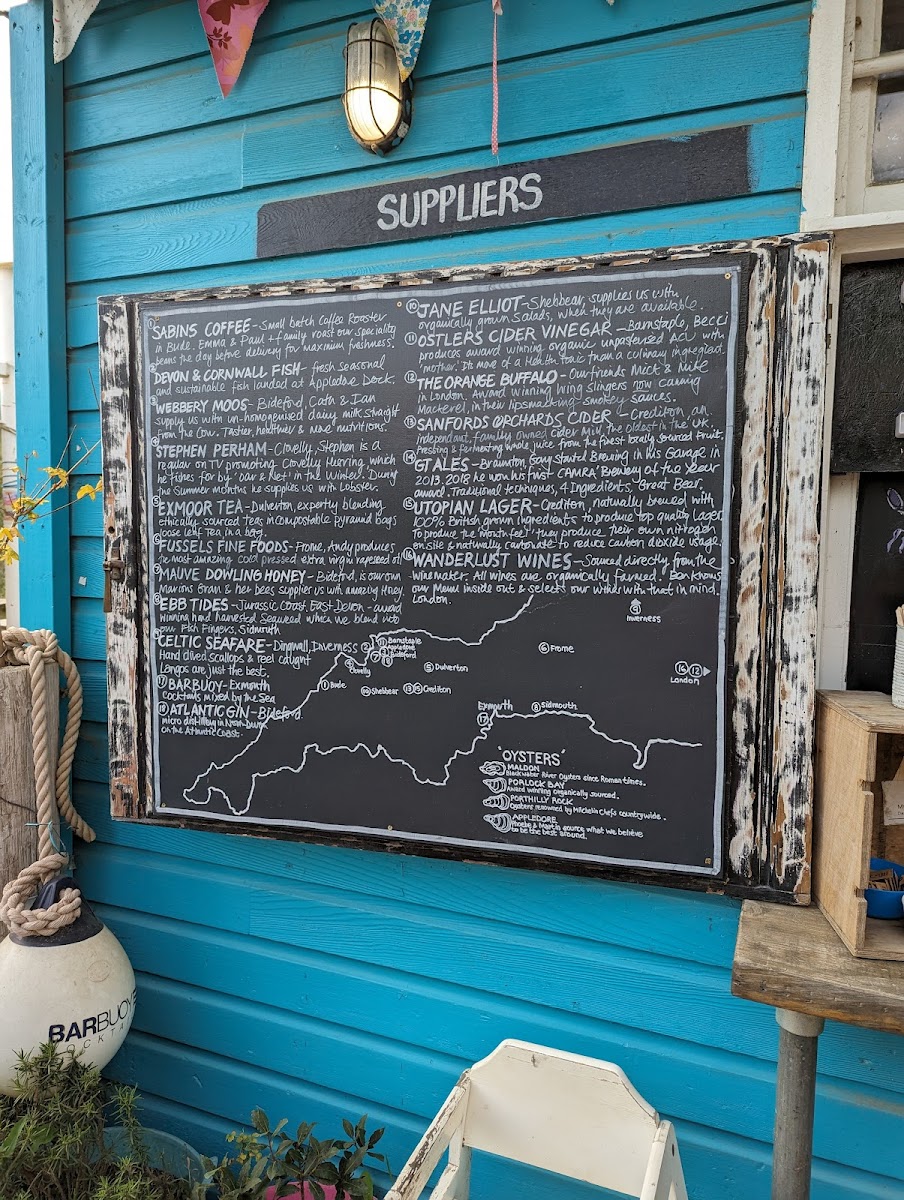 SUPPLIERS
1 SABINS COFFEE - Small batch Coffee Roaster
in Bude. Emma & Paul + family roast our speciality
beans the day before delivery for maximum freshness.
2 DEVON & CORNWALL FISH - fresh seasonal
and sustainable fish landed at Appledore Dock.
3 WEBBERY MOOS - Bideford, Cath & Ian
supply us with un-homogenised dairy milk straight
from the Cow. Tastier, healthier & more nutritions.
4 STEPHEN PERHAM - Clovelly, Stephen is a
regular on TV promoting Clovelly Herring, which
he fishes for by 'Oar & Net' in the Winter. During
the Summer months he supplies us with Lobster.
5 EXMOOR TEA - Dulverton, expertly blending
ethically sourced teas in Compostable pyramid bags
loose leaf Tea in a bag.
6 FUSSELS FINE FOODS - Frome, Andy produces
the most amazing cold pressed extra virgin rapeseed oil
7 MAUVE DOWLING HONEY - Bideford, is our own
Marions Gran & her bees supplier us with amazing Honey.
8 EBB TIDES - Jurassic Coast, East Devon - award
winning hand harvested Seaweed which we blend into
our Fish Fingers, Sidmouth
9 CELTIC SEAFARE - Dingwall, Inverness
Hand dived scallops & reel caught
Langos are just the best.
17 BARBUOY - Exmouth
Cocktails mixed by the Sea
18 ATLANTIC GIN - Bideford
micro distillery in
on the Atlantic Coast.
10 JANE ELLIOT - Shebbear, supplies us with
organically grown Salads, when they are available.
11 OSTLERS CIDER VINEGAR - Barnstaple, Becci
produces award winning organic unpasteurised ACV with
'mother.' Its more of a Health Tonic than a culinary ingredient.
12 THE ORANGE BUFFALO - Our friends Mick & Nike
in London. Award winning wing slingers now canning
Mackerel, in their lipsmacking smokey sauces.
13 SANFORDS ORCHARDS CIDER - Crediton, an
independent, family owned Cider Mill, the oldest in the UK.
Pressing & fermenting whole juice from the finest locally sourced fruit.
14 GT ALES - Braunton, Gary Started Brewing in his Garage in
2013. 2018 he won his first 'CAMRA' Brewery of the Year
award. Traditional techniques, 4 Ingredients, Great Beer.
15 UTOPIAN LAGER - Crediton, naturally brewed with
100% British grown Ingredients to produce top quality Lager.
To produce the 'mouth feel' they produce their own nitrogen
on site & naturally carbonate to reduce carbon dioxide usage.
16 WANDERLUST WINES - Sourced directly from the
Winemaker. All wines are organically farmed. Ben knows
our Menu inside out & selects our wines with that in mind.
London.
9
Inverness
Barnstaple
Appledore
Bideford
4
Clovelly
5 Dulverton
6 Frome
1 Bude
10 Shebbear
13 15 Crediton
16 12
London
Exmouth
17
8 Sidmouth
'OYSTERS'
MALDON
Blackwater River Oysters since Roman times.
PORLOCK BAY
Award winning organically sourced.
PORTHILLY ROCK
Oysters renowned by Michelin Chefs countrywide.
APPLEDORE
Phoebe & Martin source what we believe
to be the best around.
BARBUOY
COCKTA